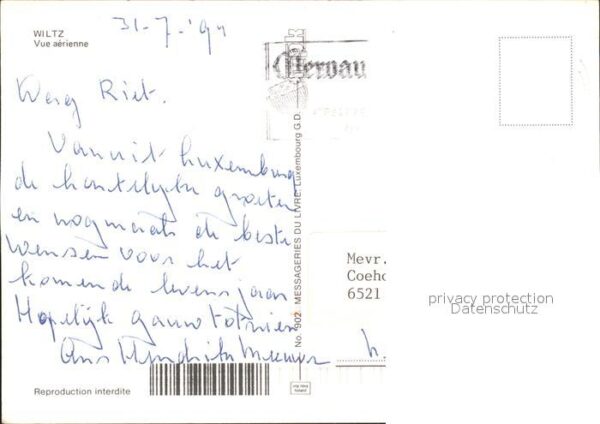 WILTZ
Vue aérienne
31-7-'94
Clervau
Dag Riet.
Vanuit Luxemburg
de hartelijke groeten
en nogmaals de beste
wensen voor het
komende levensjaar
Hopelijk gauw tot ziens
Ons
No. 902. MESSAGERIES DU LIVRE, Luxembourg G.D.
Mevr.
Coeho
6521
Reproduction interdite
privacy protection
Datenschutz